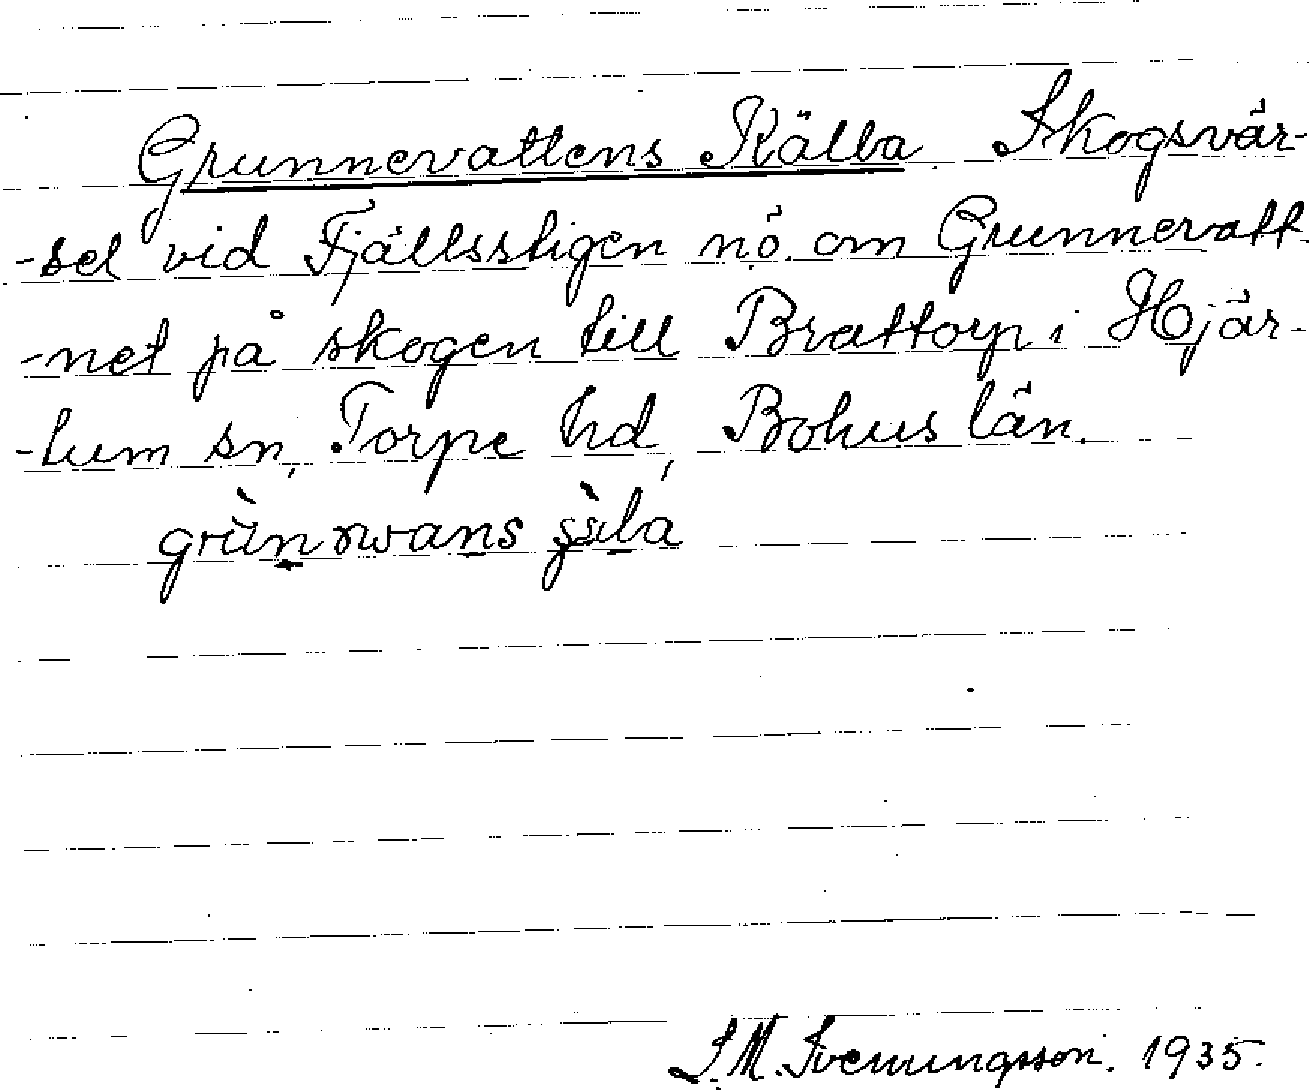 Grunnevattens Källa Skogsvär-
-sel vid Fjällsstigen nö. om Grunnevatt
-net på skogen till Brattorp i Hjär-
-tum sn, Torpe hd, Bohus län.
J.M. Svenungsson. 1935.